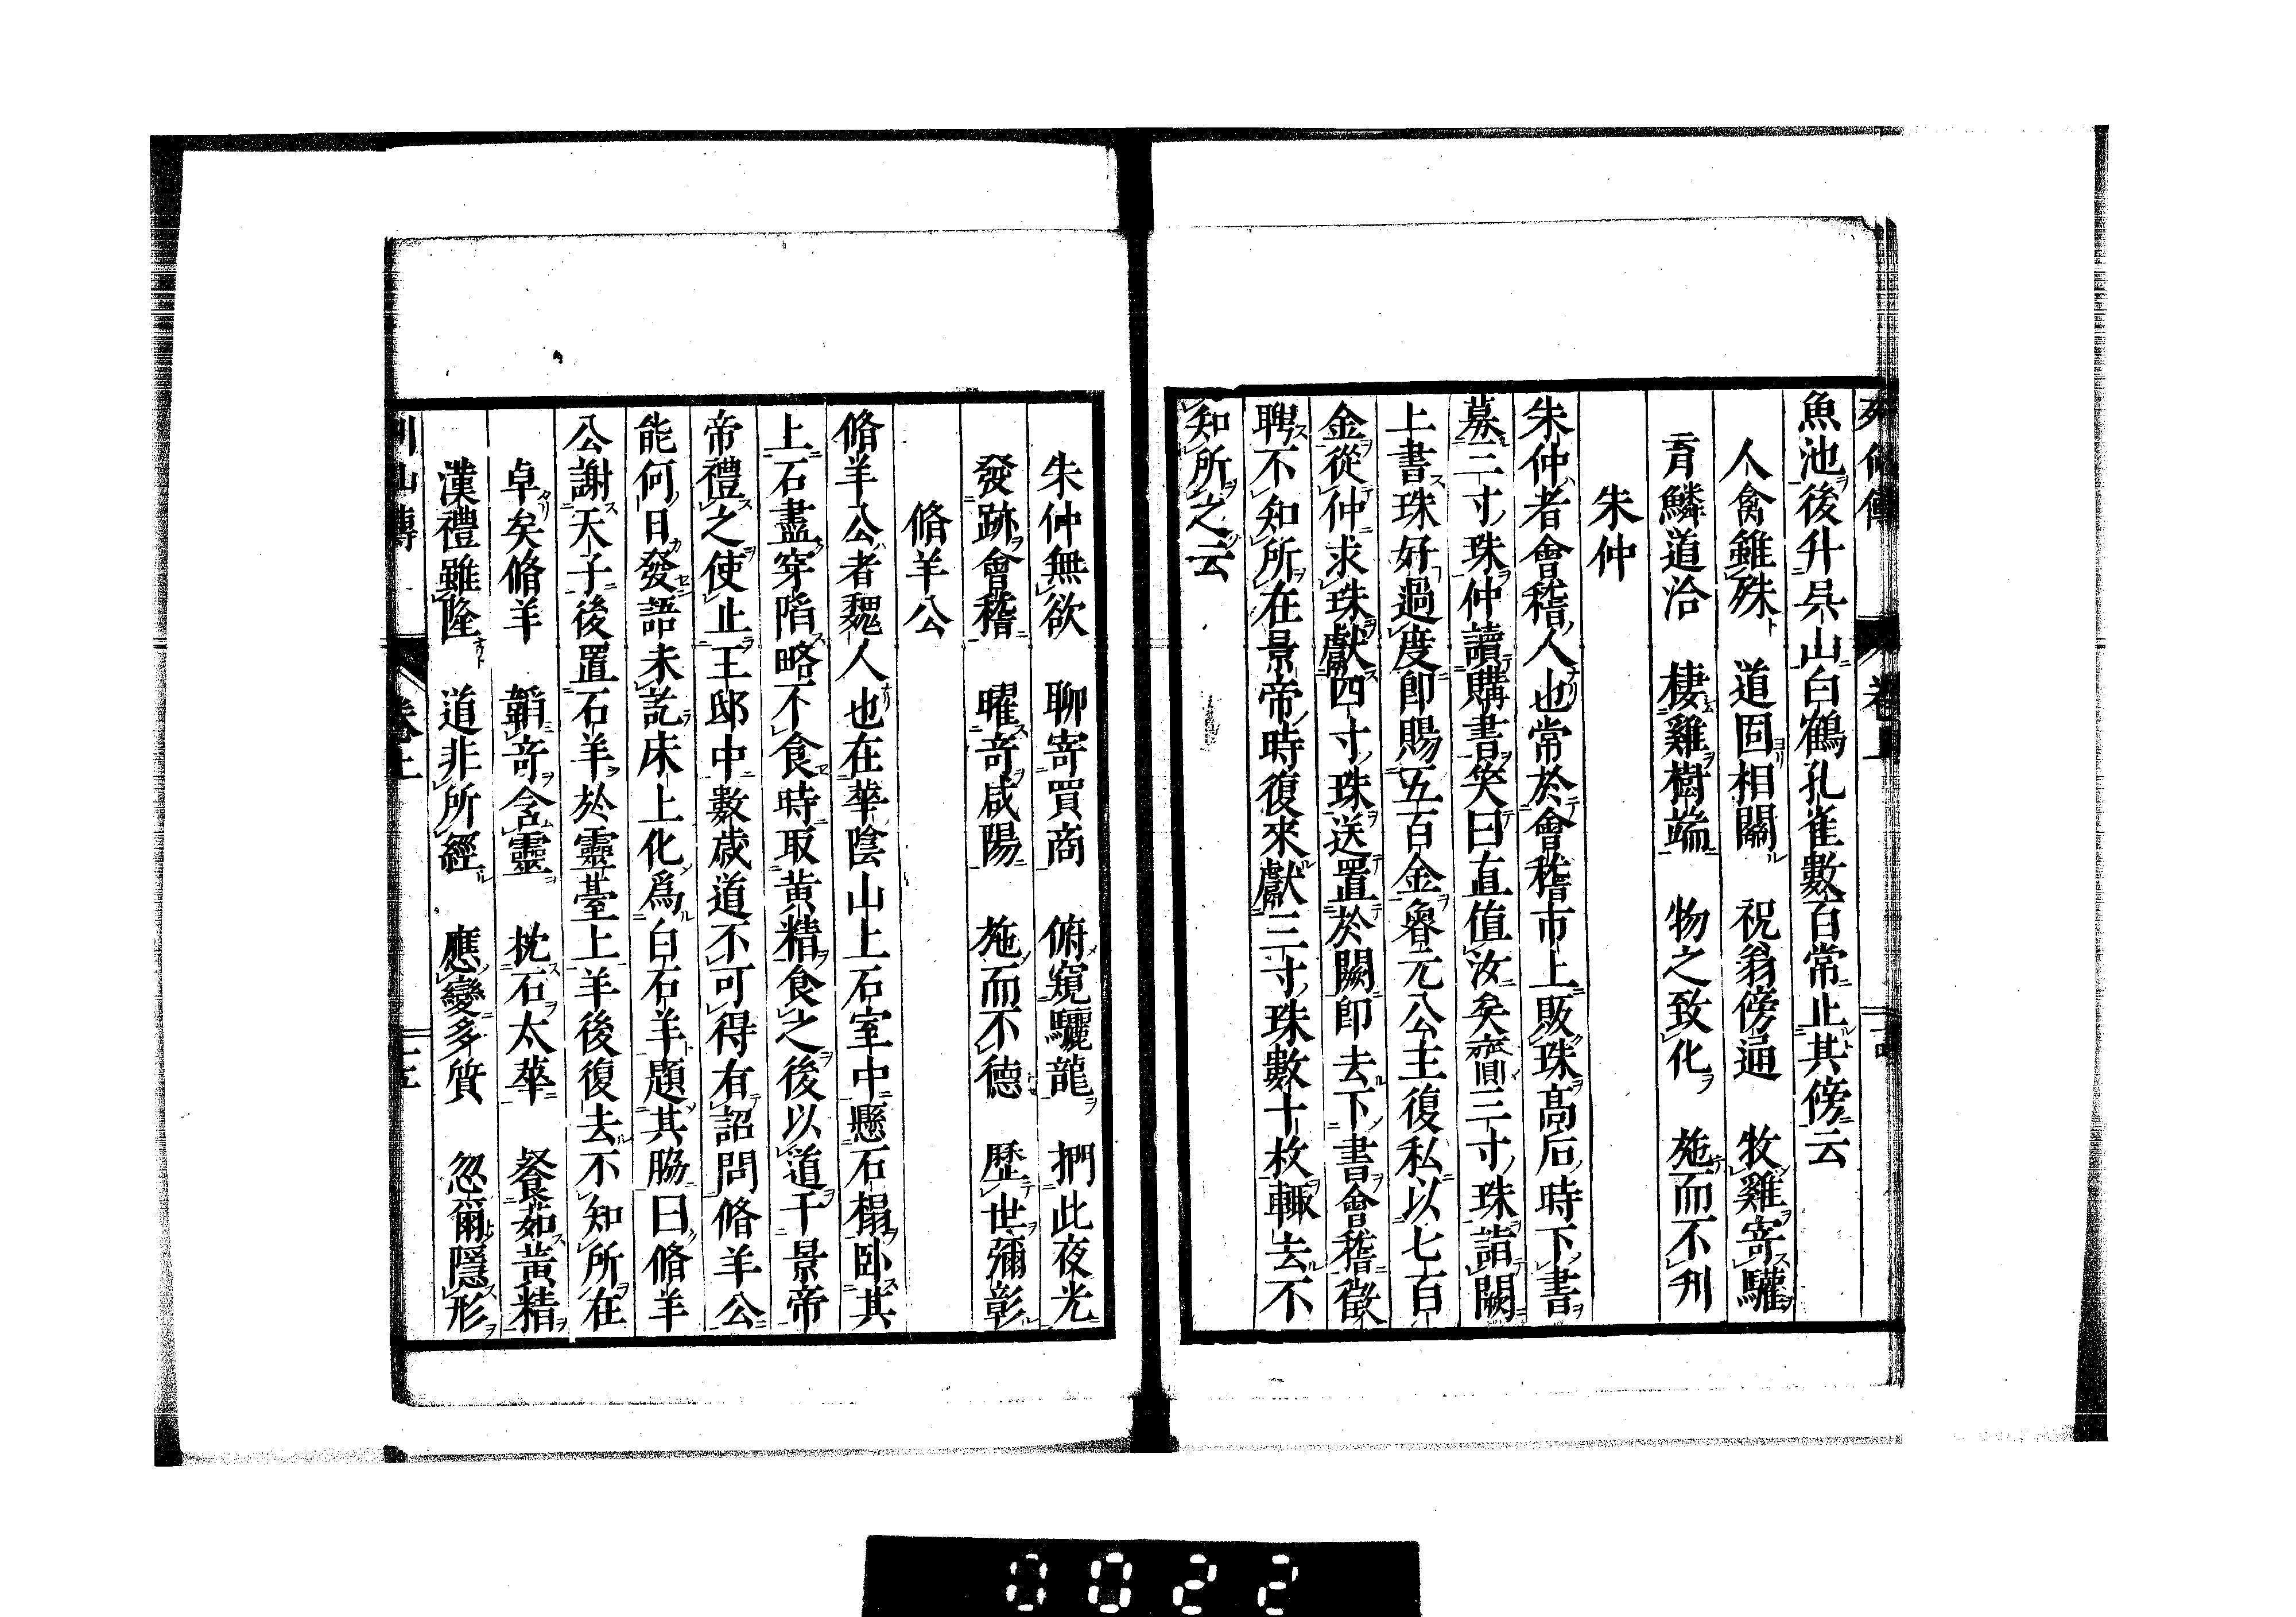 列仙傳 卷上
魚池後升吳山白鶴孔雀數百常止其傍云
人禽雖殊 道固相關 祝翁傍通 牧雞寄驩
育鱗道洽 棲雞樹端 物之致化 施而不刋
朱仲
朱仲者會稽人也常於會稽市上販珠高后時下書
募三寸珠仲讀購書笑曰直值汝矣齎三寸珠詣闕
上書珠好過度即賜五百金魯元公主復私以七百
金從仲求珠獻四寸珠送置於闕即去下書會稽徵
聘不知所在景帝時復來獻三寸珠數十枚輙去不
知所之云
朱仲無欲 聊寄買商 俯窺驪龍 捫此夜光
發跡會稽 曜奇咸陽 施而不德 歷世彌彰
脩羊公
脩羊公者魏人也在華陰山上石室中懸石榻臥其
上石盡穿陷略不食時取黄精食之後以道干景帝
帝禮之使止王邸中數歲道不可得有詔問脩羊公
能何日發語未訖床上化爲白石羊題其脇曰脩羊
公謝天子後置石羊於靈臺上羊後復去不知所在
卓矣脩羊 韜奇含靈 枕石太華 餐茹黃精
漢禮雖隆 道非所經 應變多質 忽爾隱形
列仙傳 卷上